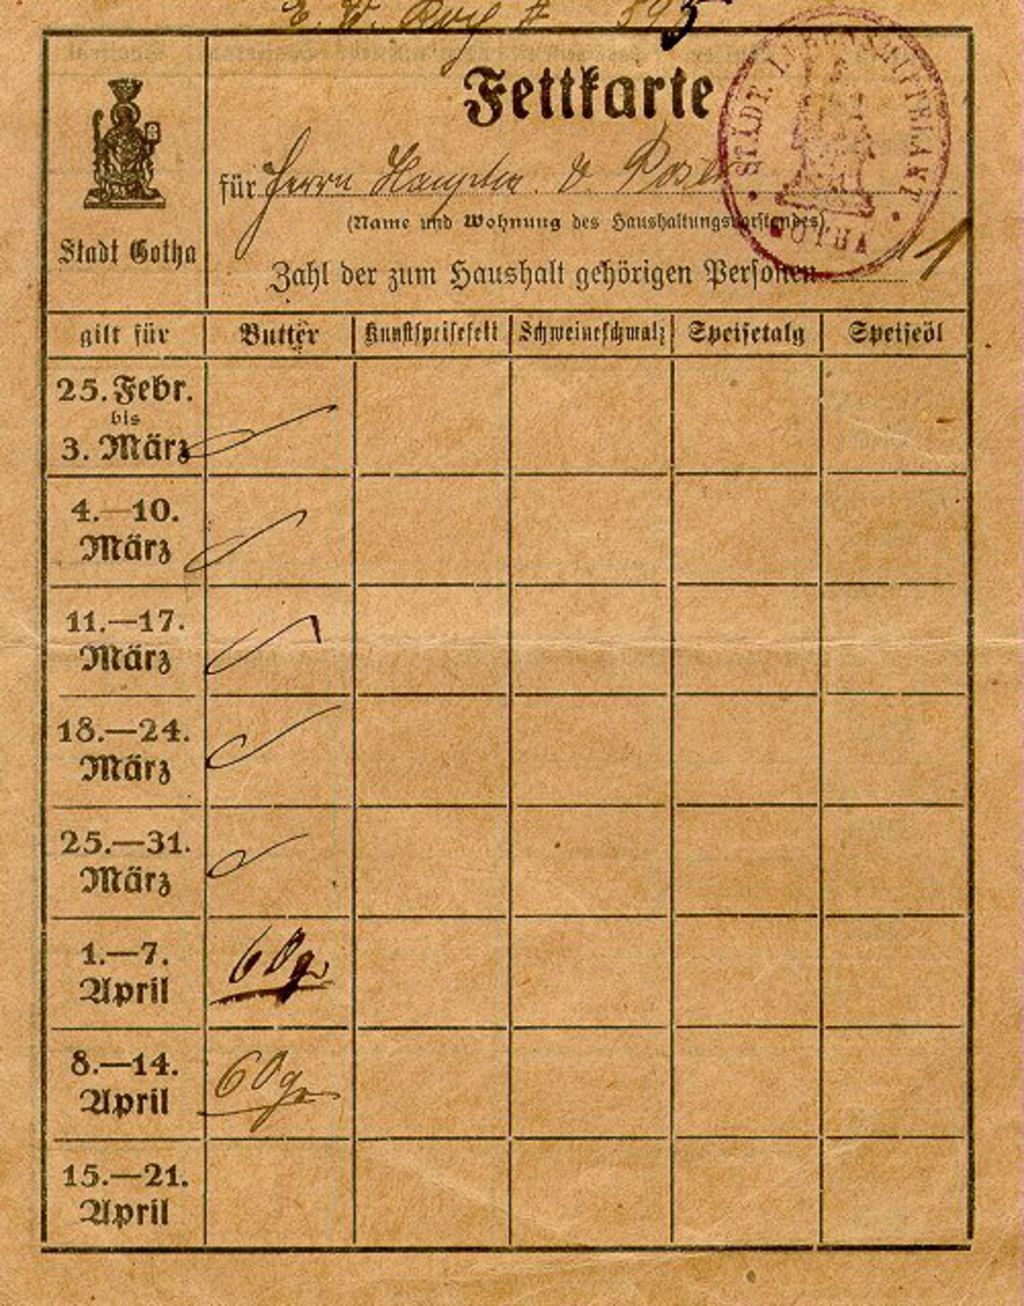 Fettkarte
für Herrn Hauptm. v.
(Name und Wohnung des Haushaltungsvorstandes)
Stadt Gotha
Zahl der zum Haushalt gehörigen Personen 1
STÄDT. LEBENSMITTELAMT
GOTHA
gilt für Butter Kunstspeisefett Schweineschmalz Speisetalg Speiseöl
25. Febr.
bis
3. März
4.—10.
März
11.—17.
März
18.—24.
März
25.—31.
März
1.—7.
April
60 gr
8.—14.
April
60 gr
15.—21.
April